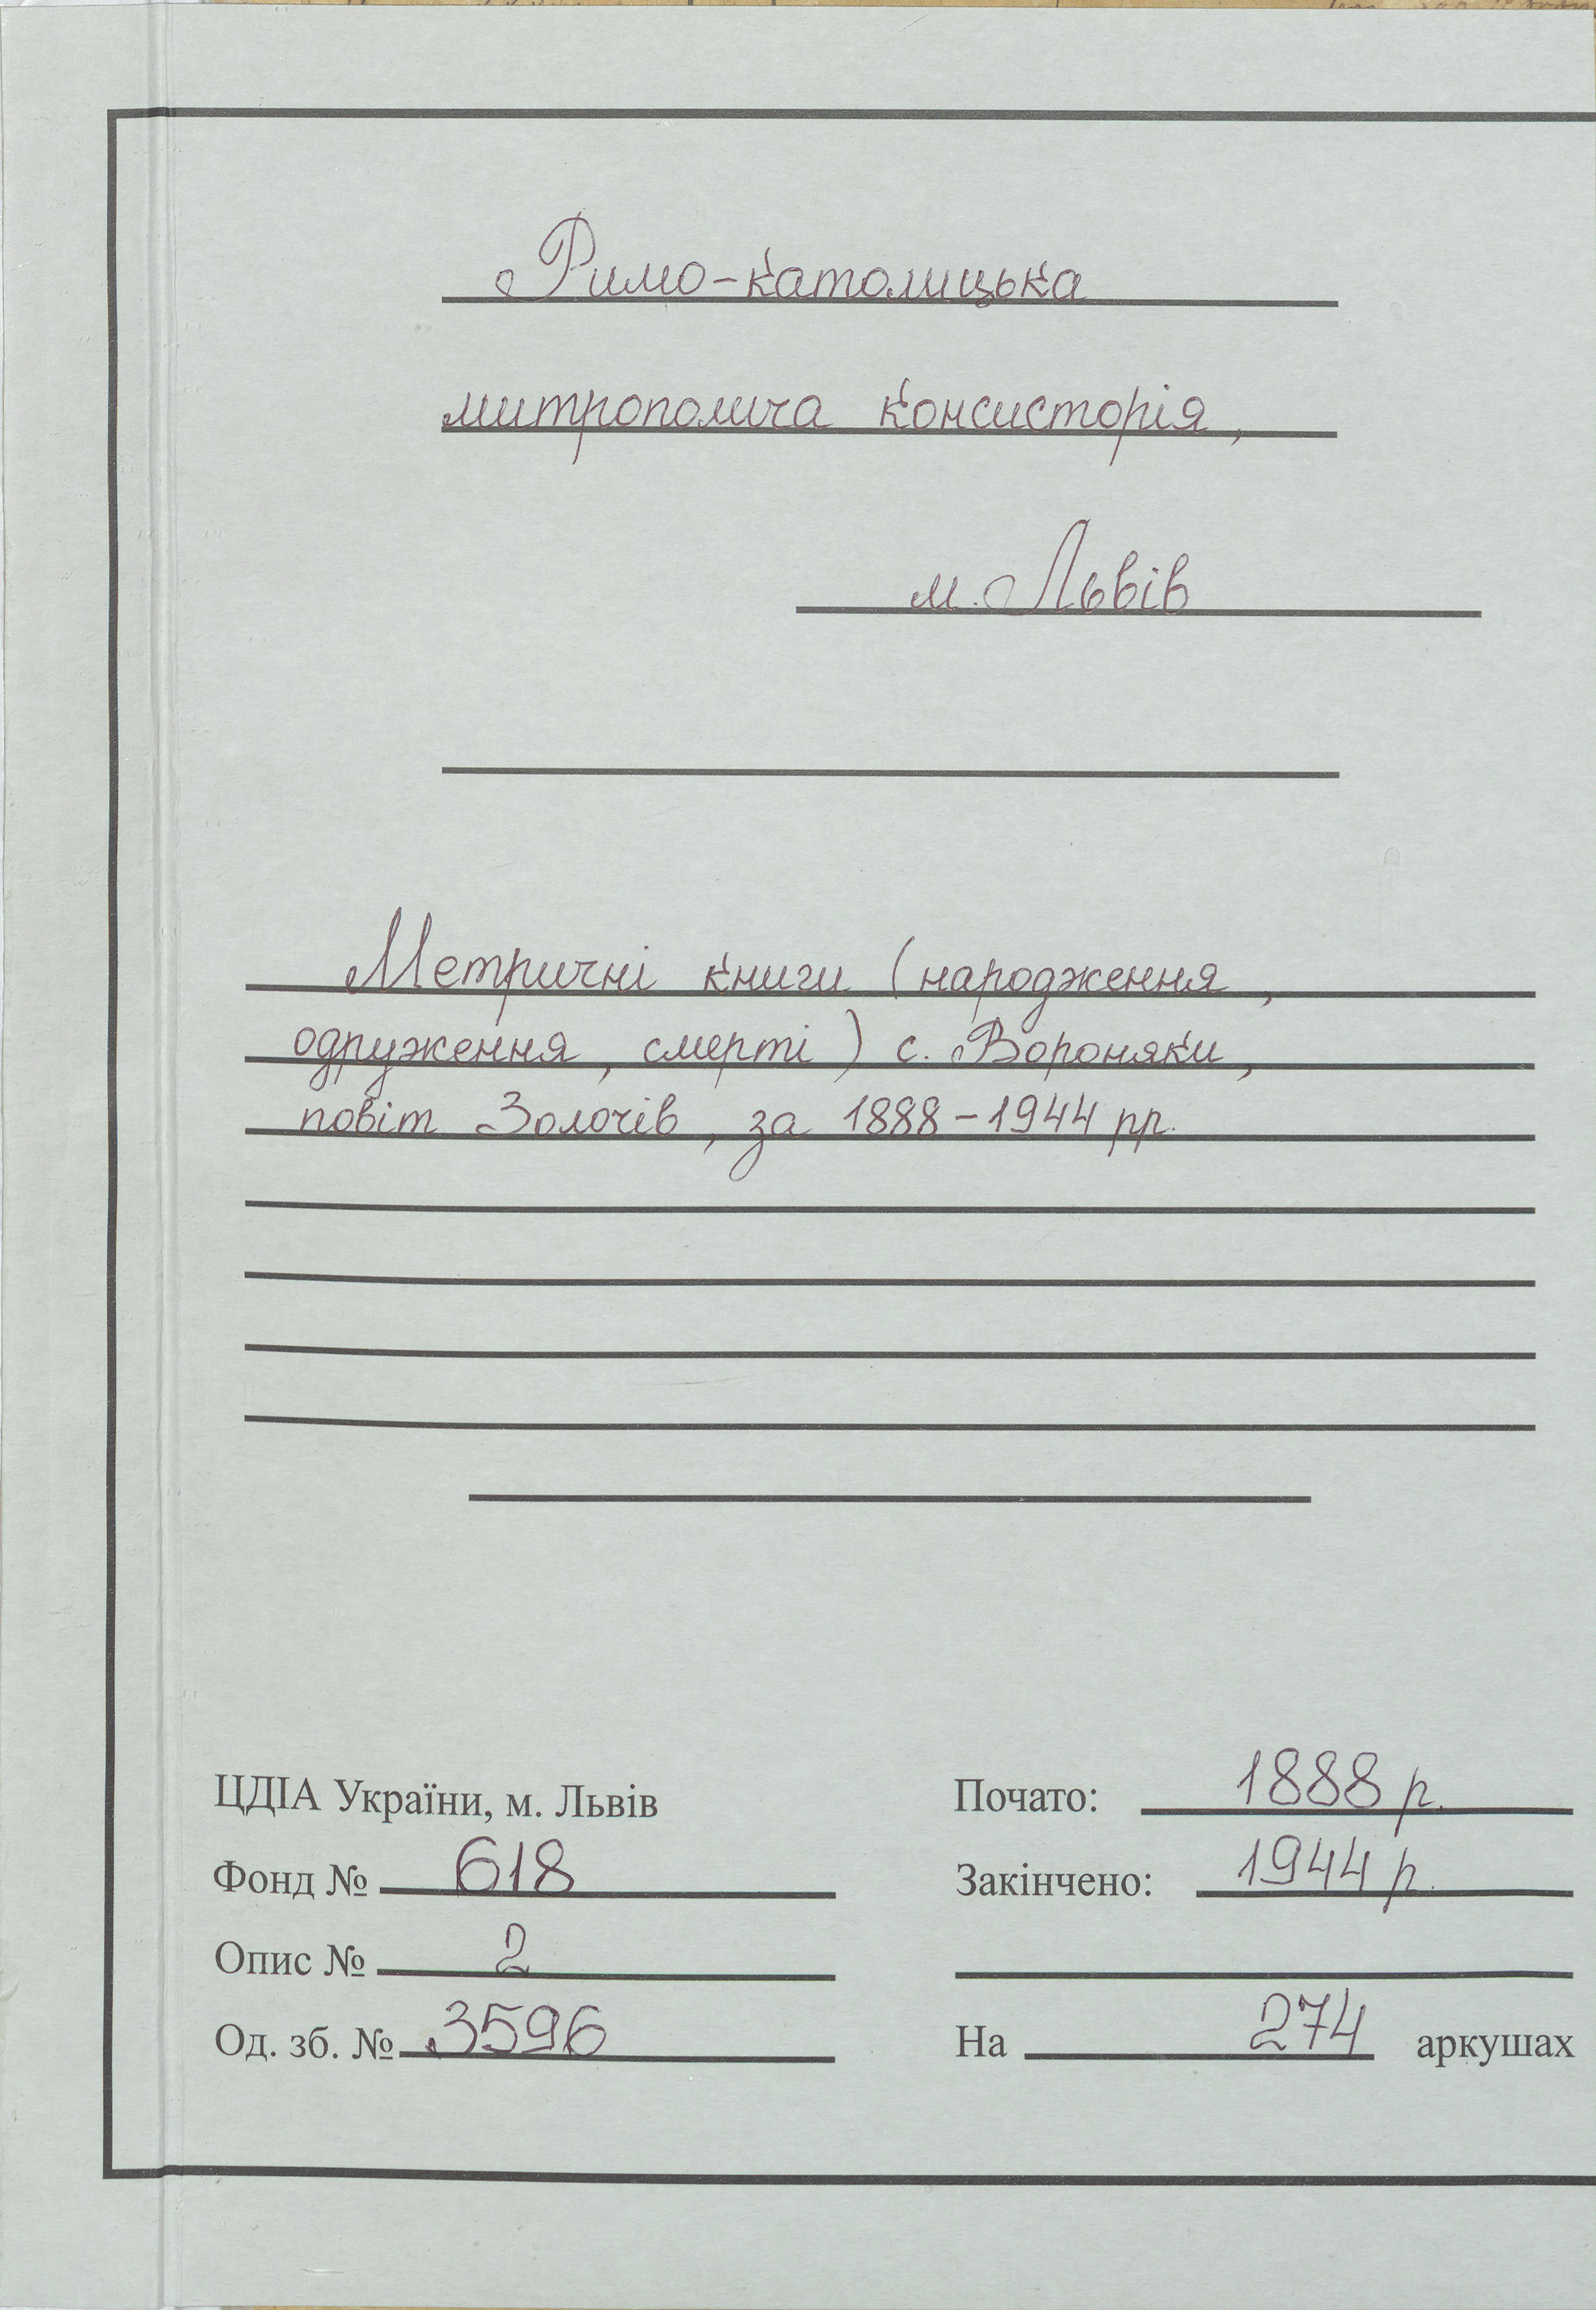 Римо-католицька
митрополича консисторія,
м. Львів
Метричні книги (народження,
одруження, смерті) с. Вороняки,
повіт Золочів, за 1888-1944 рр.
ЦДІА України, м. Львів
Почато: 1888 р.
Фонд № 618
Закінчено: 1944 р.
Опис № 2
Од. зб. № 3596
На 274 аркушах